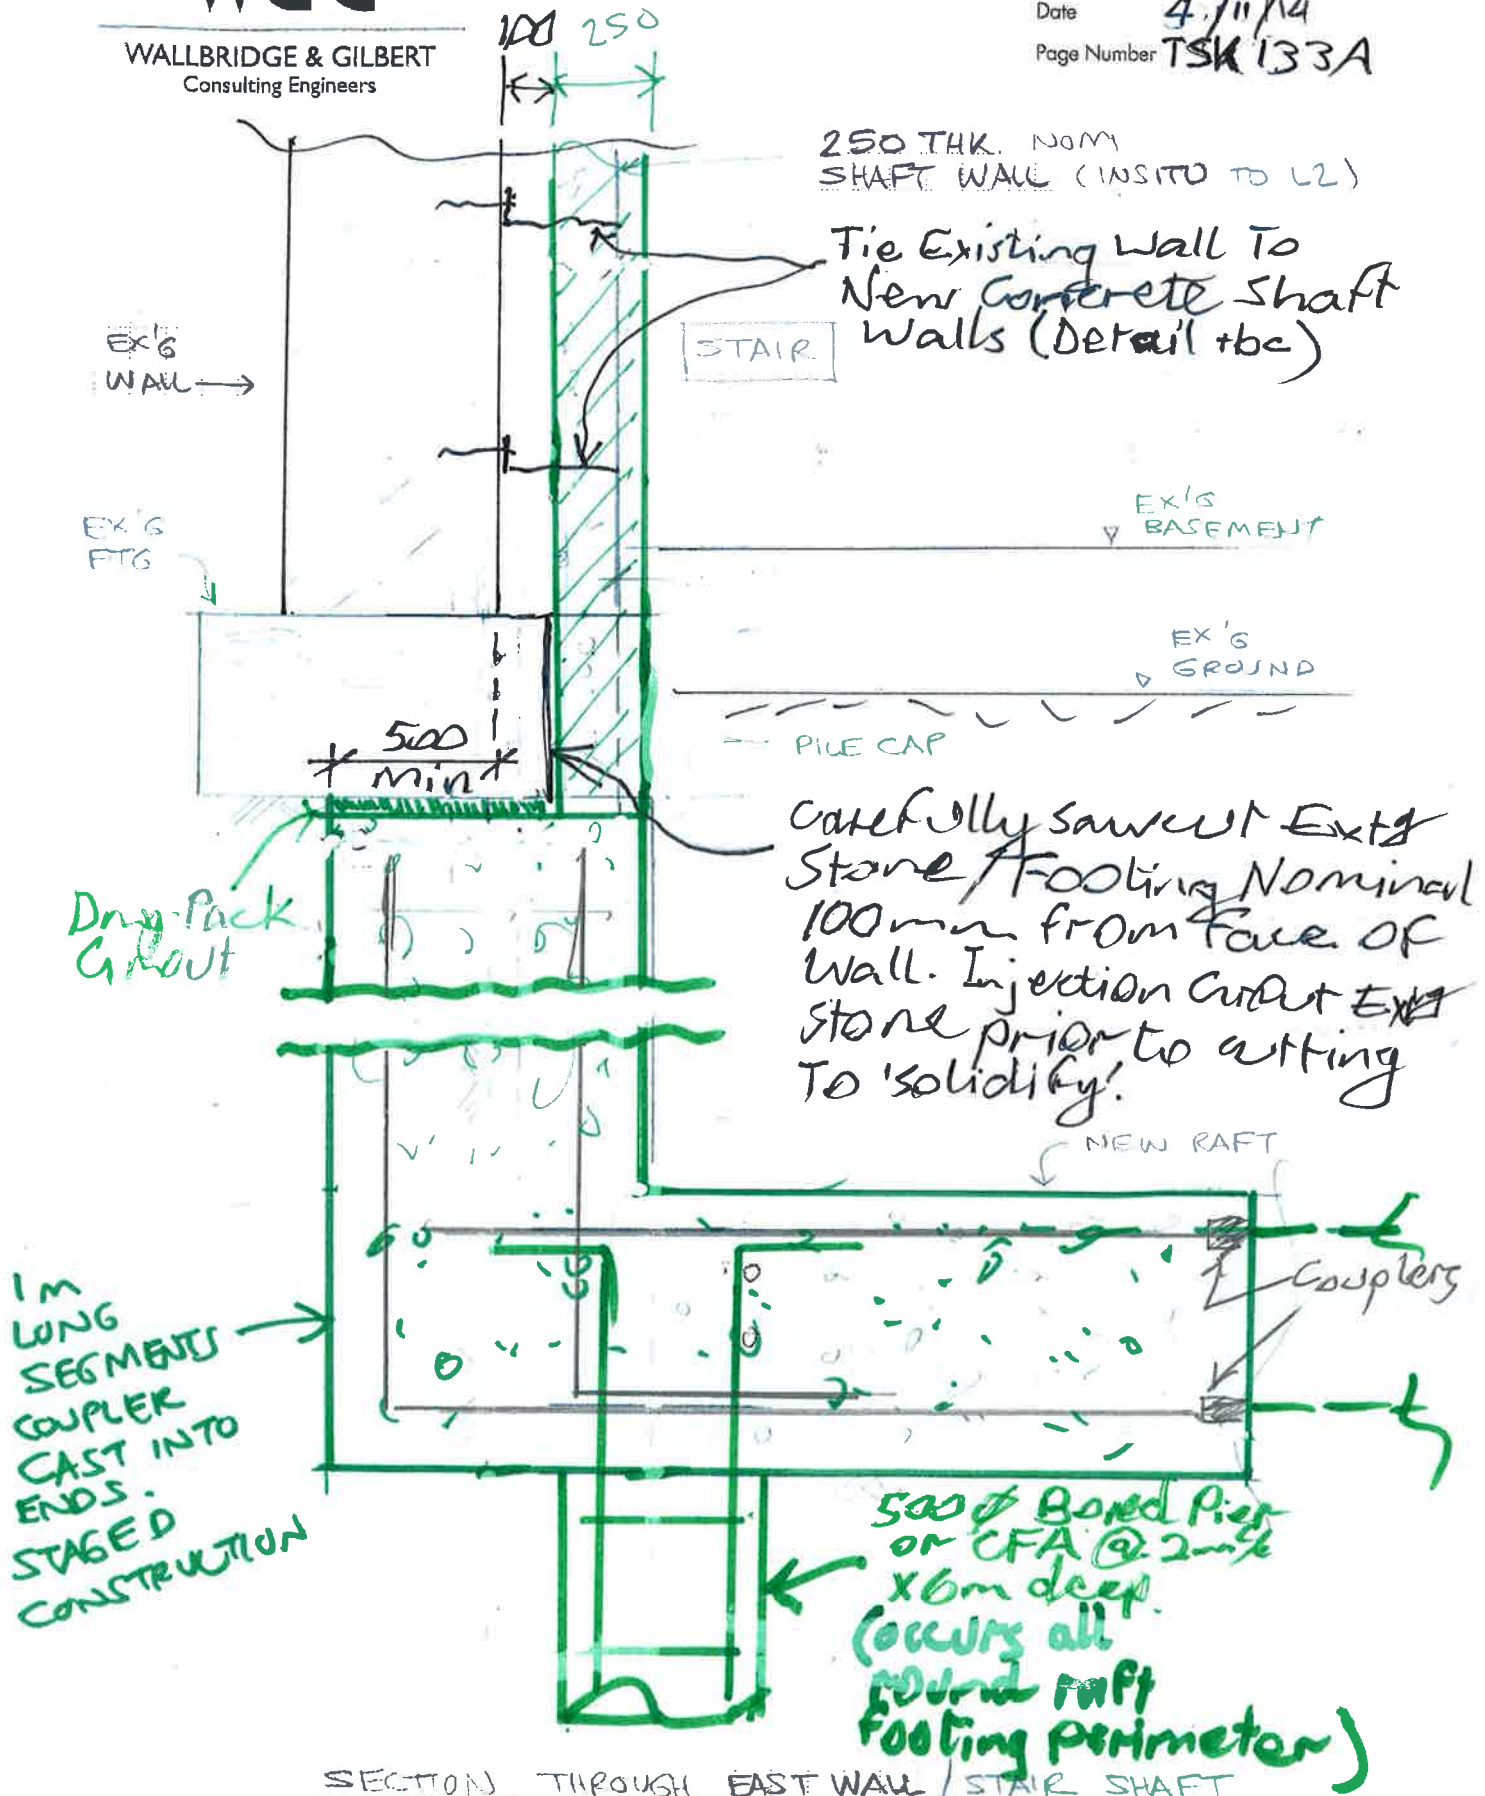 WALLBRIDGE & GILBERT
Consulting Engineers
Date 4/11/14
Page Number TSK 133A
100 250
250 THK. NOM
SHAFT WALL (INSITU TO L2)
Tie Existing Wall To
New Concrete Shaft
Walls (Detail tbc)
STAIR
EX'G
WALL
EX'G
FTG
EX'G
BASEMENT
EX'G
GROUND
PILE CAP
500
Min
Dry Pack
Grout
Carefully Sawcut Extg
Stone/Footing Nominal
100mm from Face OF
Wall. Injection Grout Extg
Stone prior to cutting
To 'solidify'.
NEW RAFT
Couplers
1m
LONG
SEGMENTS
COUPLER
CAST INTO
ENDS.
STAGED
CONSTRUCTION
500 Ø Bored Pier
or CFA @ 2m
x6m deep.
(occurs all
round raft
footing perimeter)
SECTION THROUGH EAST WALL / STAIR SHAFT